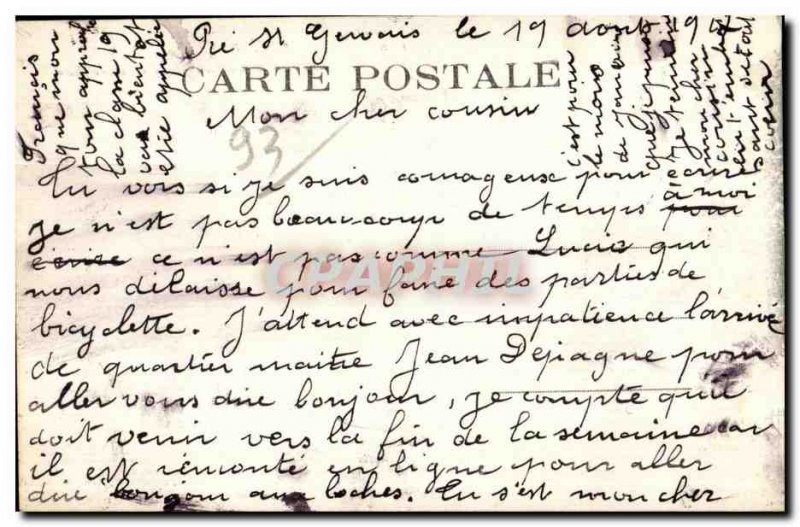 Pré St Gervais le 19 aout 191
CARTE POSTALE
Mon cher cousin
93
Tu vois si je suis courageuse pour écrire
je n'est pas beaucoup de temps à moi
pour
écrire ce n'est pas comme Lucie qui
nous délaisse pour faire des parties de
bicyclette. J'attend avec impatience l'arrivé
de quartier maitre Jean Dépagne pour
aller vous dire bonjour, je compte qu'il
doit venir vers la fin de la semaine car
il est rémonté en ligne pour aller
dire bonjour aux boches. Tu s'est mon cher
Francis
que mon
tour approche
la classe 19
va bientot
etre appelée
c'est pour
le mois
de
que je pense
je termine
mon cher
cousin
en t'embrassant
de tout
coeur
CPAPHIL